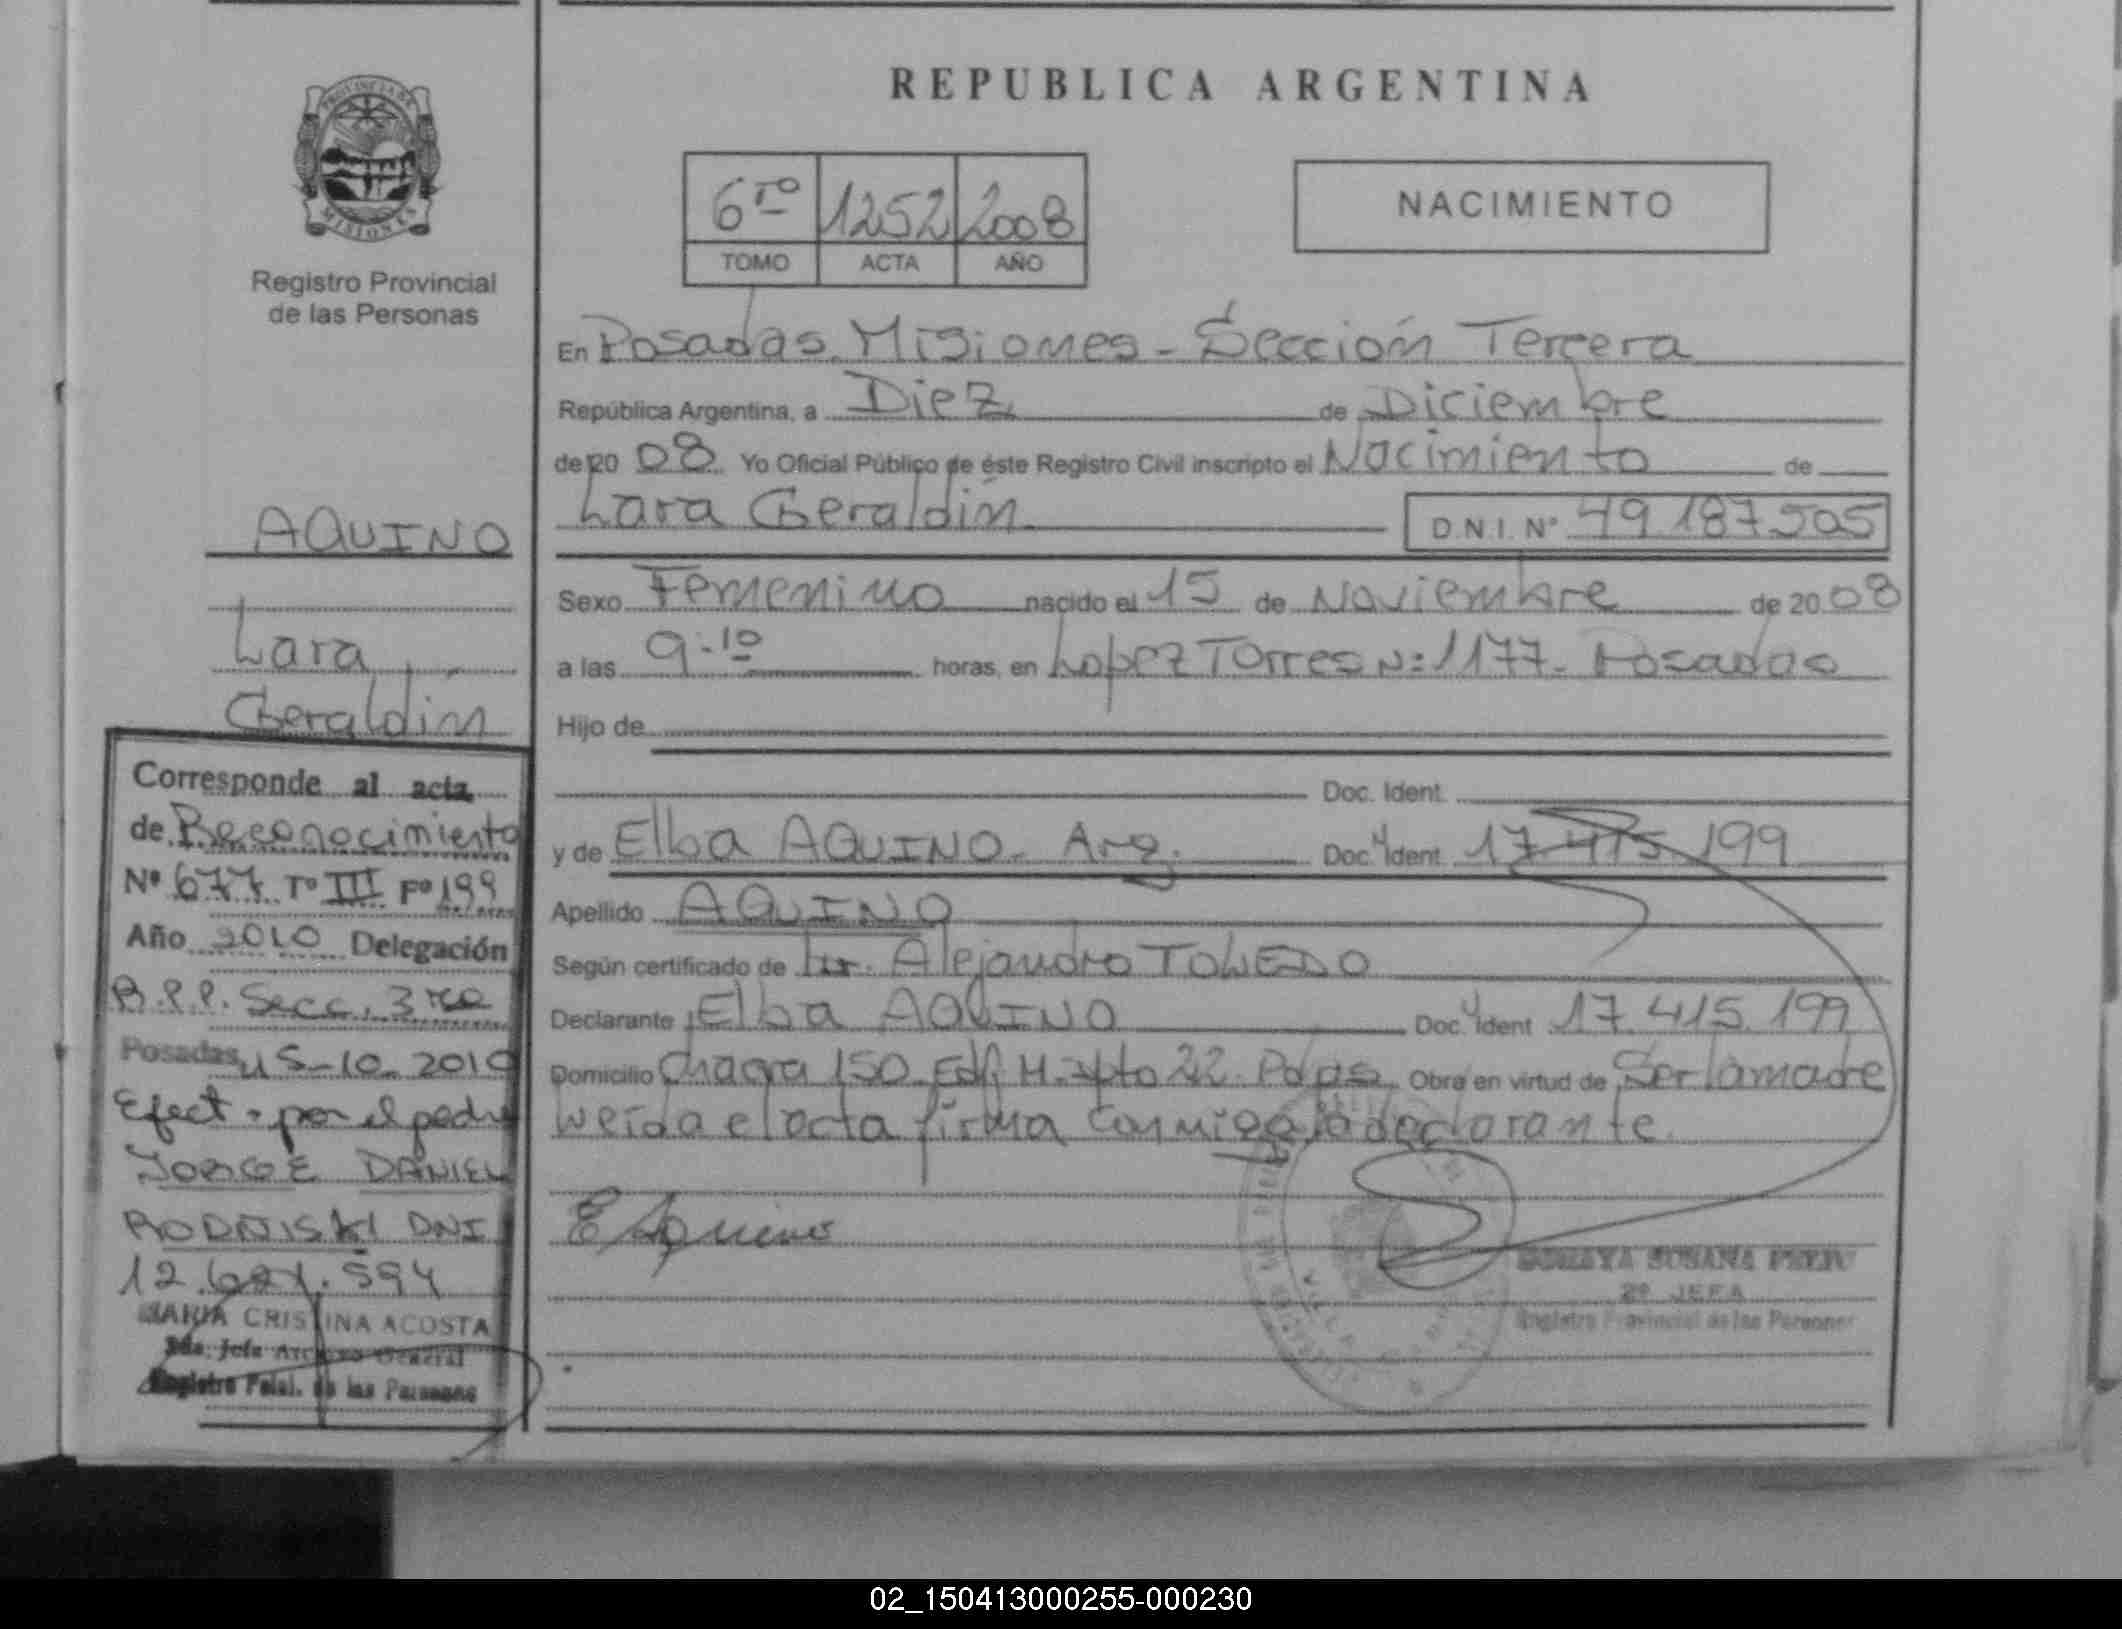 REPUBLICA ARGENTINA
PROVINCIA DE
MISIONES
Registro Provincial
de las Personas
6to 1252 2008
TOMO ACTA AÑO
NACIMIENTO
En Posadas. Misiones - Sección Tercera
República Argentina, a Diez de Diciembre
de 20 08 Yo Oficial Público de éste Registro Civil inscripto el Nacimiento de
Lara Geraldín D.N.I. Nº 49.187.505
Sexo Femenino nacido el 15 de Noviembre de 20 08
a las 9:10 horas, en Lopez Torres Nº 1177 - Posadas
Hijo de
Doc. Ident.
y de Elba AQUINO - Arg. Doc. Ident. 17.415.199
Apellido AQUINO
Según certificado de Dr. Alejandro TOLEDO
Declarante Elba AQUINO Doc. Ident 17.415.199
Domicilio Chacra 150 Edif H. Dpto 22. Pdas Obra en virtud de Ser la madre
Leida el acta firma conmigo la declarante.
E Aquino
SORAYA SUSANA
2º JEFA
Registro Provincial de las Personas
AQUINO
Lara
Geraldín
Corresponde al acta
de Reconocimiento
Nº 677 Tº III Fº 199
Año 2010 Delegación
R.P.P. Secc. 3ra
Posadas, 15-10-2010
Efect. por el padre
JORGE DANIEL
DNI
MARIA CRISTINA ACOSTA
2da. Jefa Archivo General
Registro Pcial. de las Personas
02_150413000255-000230